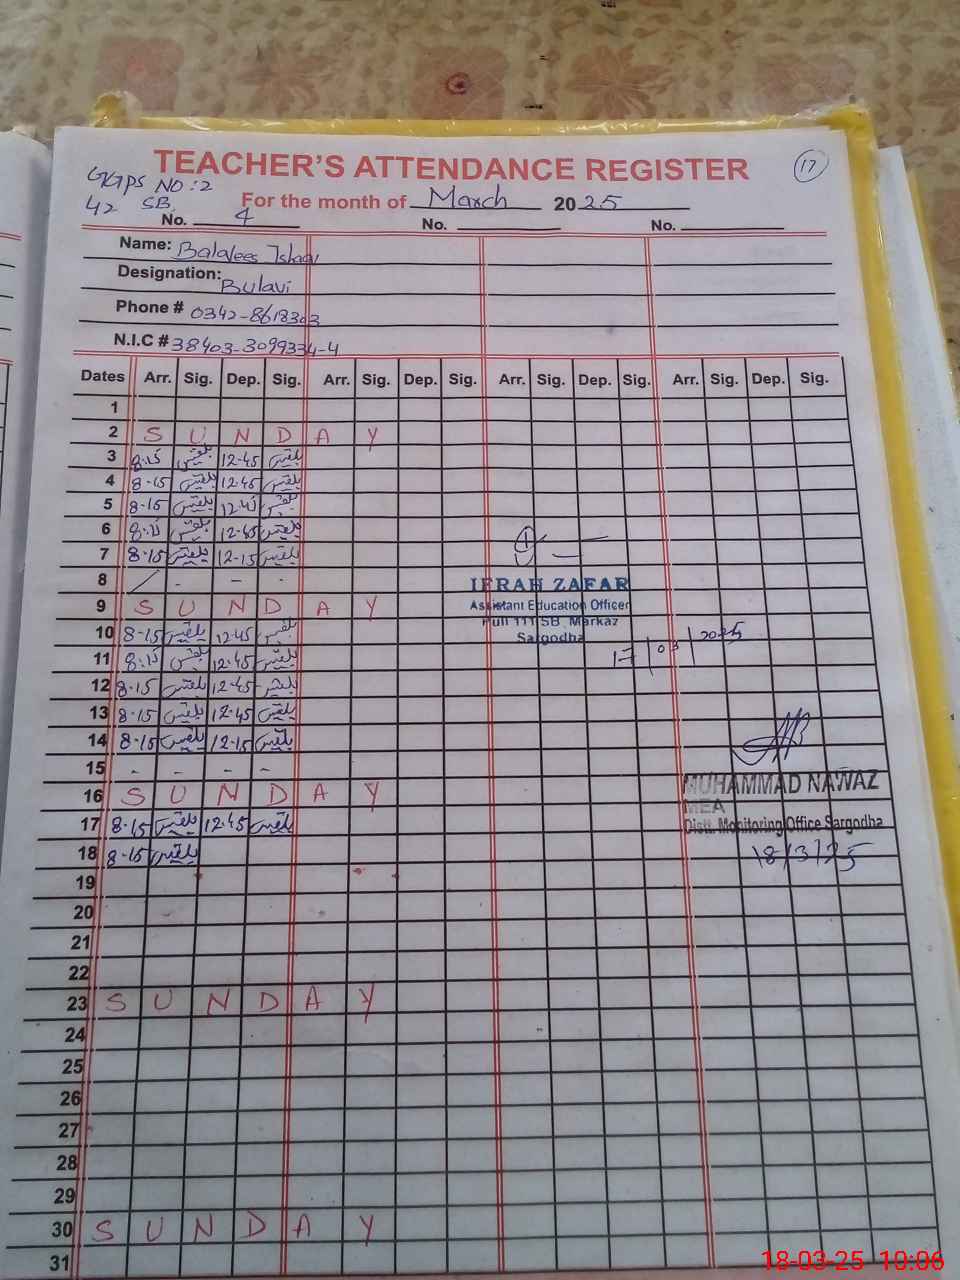 TEACHER'S ATTENDANCE REGISTER
17
GGPS NO:2
42 SB
For the month of March 2025
No. 4 No. No.
Name: Balalees
Designation: Bulavi
Phone # 0342-8618303
N.I.C # 38403-3099334-4
Dates Arr. Sig. Dep. Sig. Arr. Sig. Dep. Sig. Arr. Sig. Dep. Sig. Arr. Sig. Dep. Sig.
1
2 S U N D A Y
3 8.15 بلقیس 12-45 بلقیس
4 8-15 بلقیس 12-45 بلقیس
5 8-15 بلقیس 12.45 بلقیس
6 8.15 بلقیس 12-45 بلقیس
7 8-15 بلقیس 12-15 بلقیس
8 / - - -
9 S U N D A Y
10 8-15 بلقیس 12-45 بلقیس
11 8.15 بلقیس 12-45 بلقیس
12 8-15 بلقیس 12-45 بلقیس
13 8-15 بلقیس 12-45 بلقیس
14 8-15 بلقیس 12-15 بلقیس
15 - - - -
16 S U N D A Y
17 8-15 بلقیس 12-45 بلقیس
18 8-15 بلقیس
19
20
21
22
23 S U N D A Y
24
25
26
27
28
29
30 S U N D A Y
31
IFRAH ZAFAR
Assistant Education Officer
Pull 111 SB Markaz
Sargodha
17/03/2025
MUHAMMAD NAWAZ
MEA
Distt. Monitoring Office Sargodha
18/3/25
18-03-25 10:06